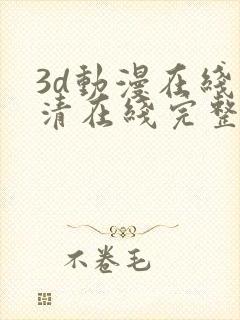 3d動漫在綫
清在綫完整
不卷毛